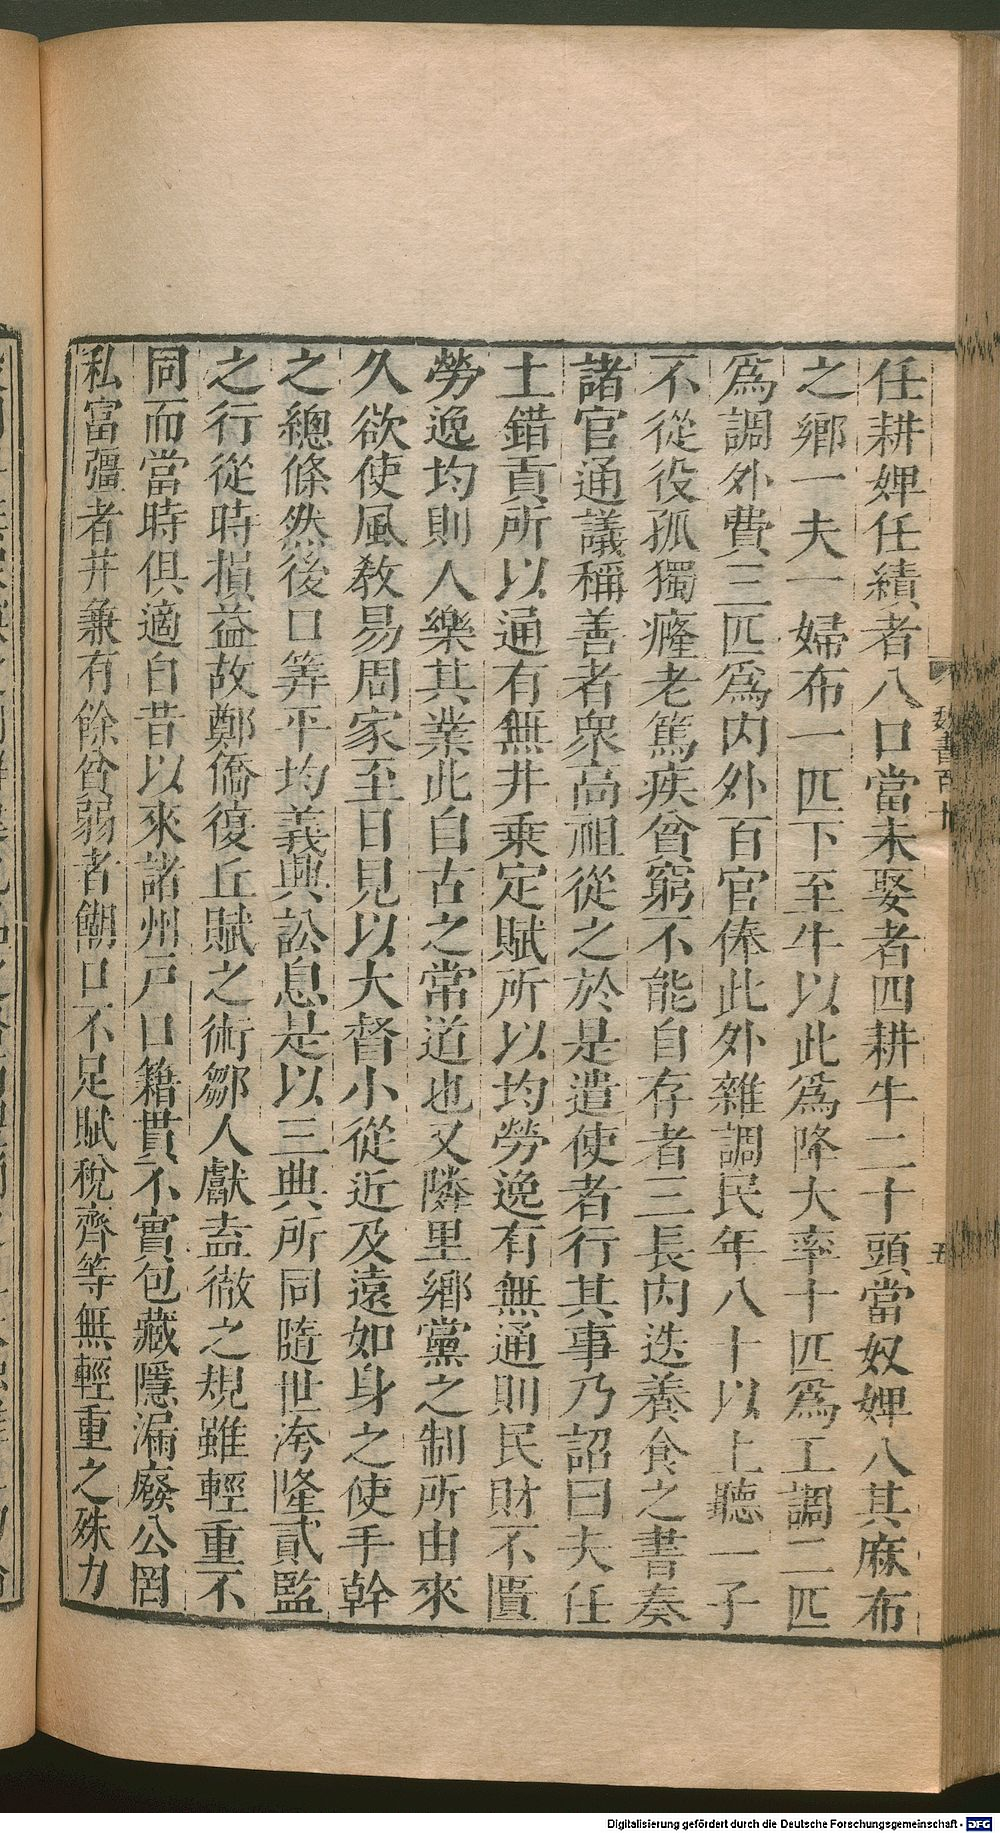 任耕婢任績者八口當未娶者四耕牛二十頭當奴婢八其麻布
之鄉一夫一婦布一匹下至牛以此爲降大率十匹爲工調二匹
爲調外費三匹爲内外百官俸此外雜調民年八十以上聽一子
不從役孤獨癃老篤疾貧窮不能自存者三長内迭養食之書奏
諸官通議稱善者衆高祖從之於是遣使者行其事乃詔曰夫任
土錯貢所以通有無井乘定賦所以均勞逸有無通則民財不匱
勞逸均則人樂其業此自古之常道也又隣里鄉黨之制所由來
久欲使風敎易周家至日見以大督小從近及遠如身之使手幹
之總條然後口筭平均義興訟息是以三典所同隨世洿隆貳監
之行從時損益故鄭僑復丘賦之術鄒人獻盍徹之規雖輕重不
同而當時俱適自昔以來諸州戸口籍貫不實包藏隱漏廢公罔
私富彊者并兼有餘貧弱者餬口不足賦稅齊等無輕重之殊力
魏書百十
五
Digitalisierung gefördert durch die Deutsche Forschungsgemeinschaft - DFG